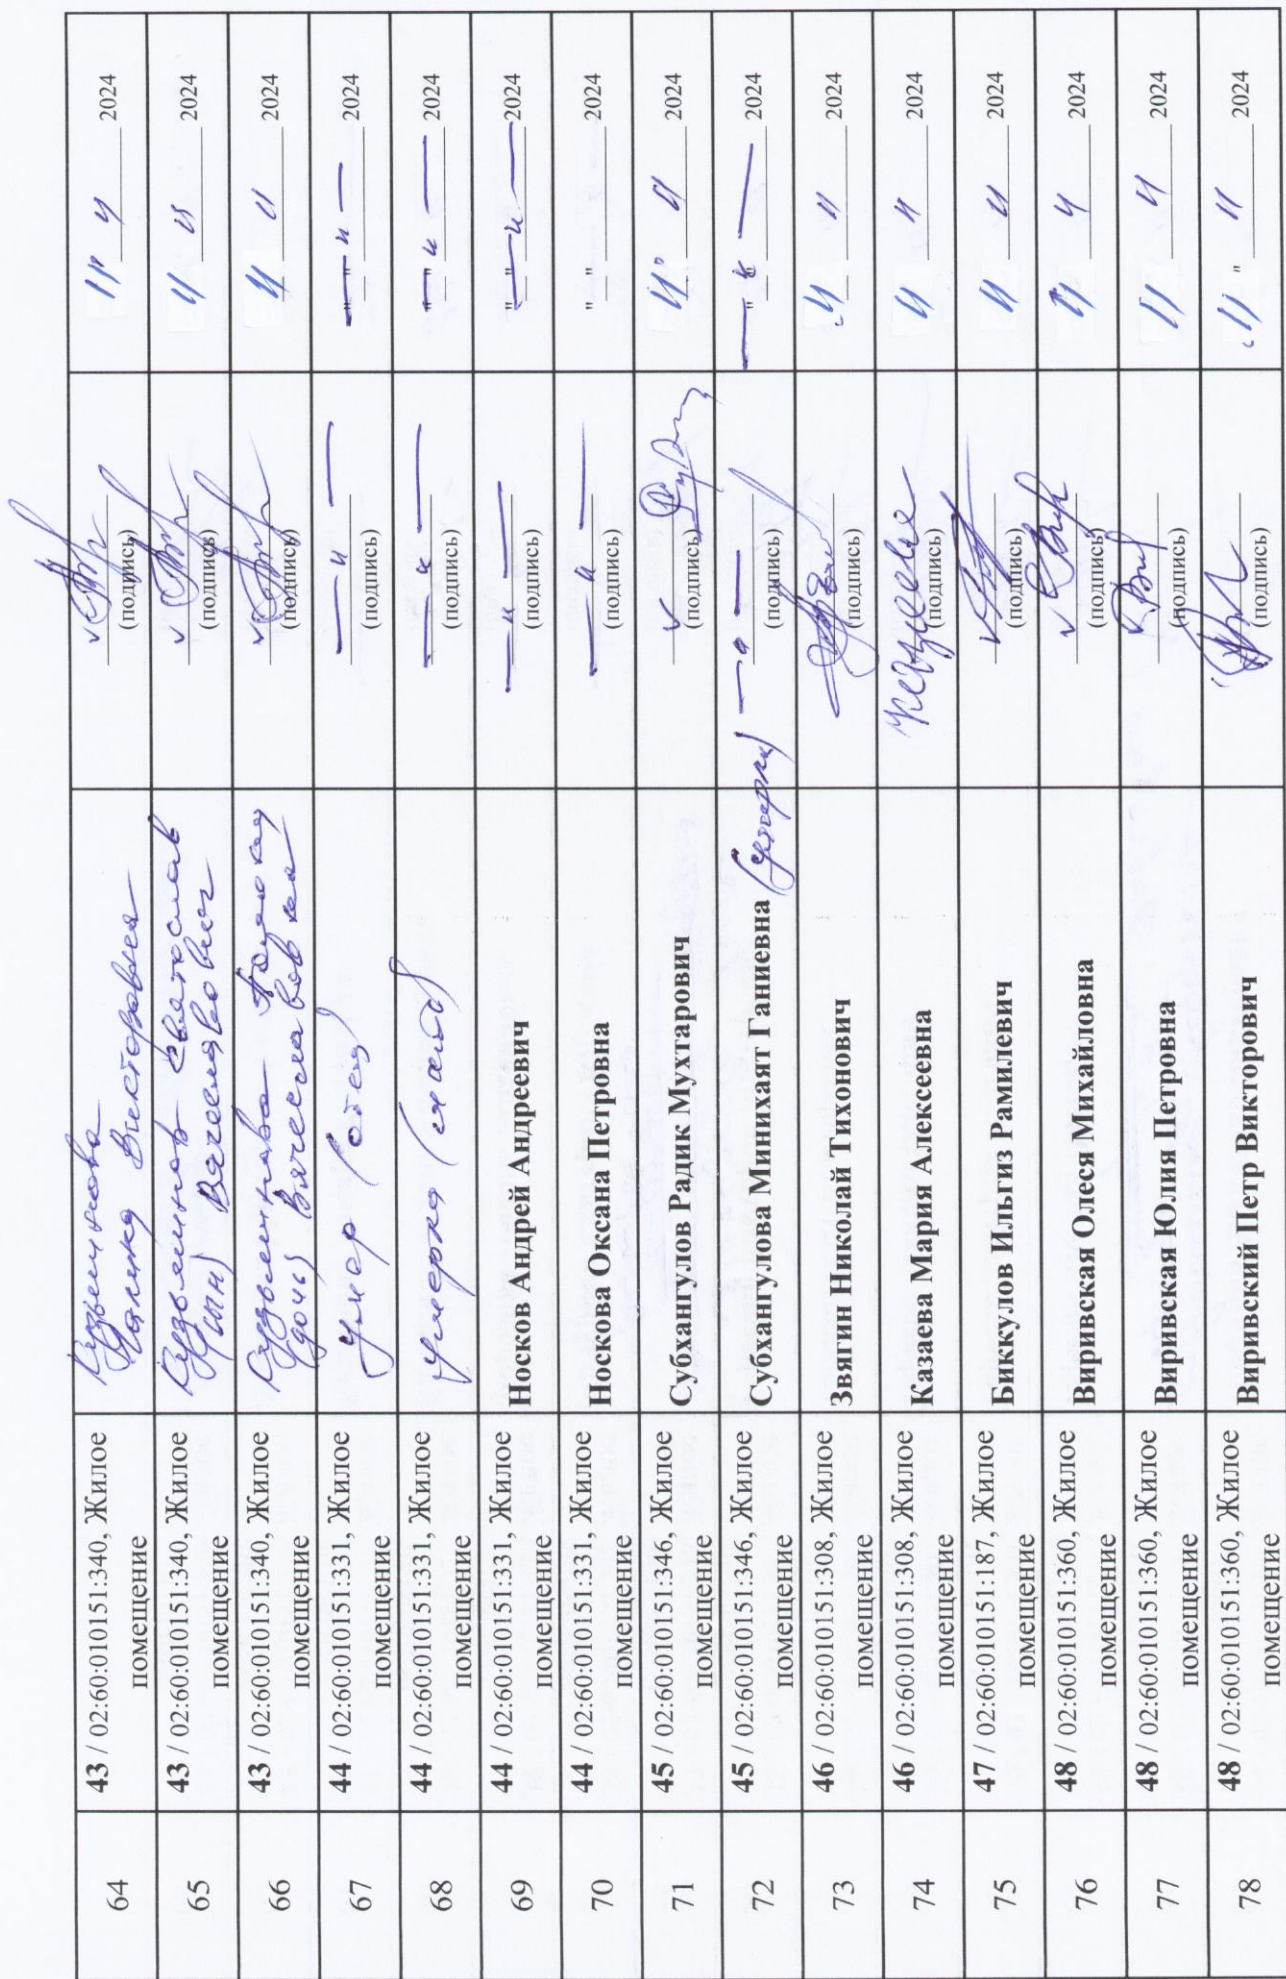 64 43 / 02:60:010151:340, Жилое помещение Кузьминова Викторовна (подпись) 11" 4 2024
65 43 / 02:60:010151:340, Жилое помещение Кузьминов Святослав Вячеславович (подпись) 11 2024
66 43 / 02:60:010151:340, Жилое помещение Кузьминова (дочь) Вячеславовна (подпись) 11 2024
67 44 / 02:60:010151:331, Жилое помещение умер (отец) — " — (подпись) — " — 2024
68 44 / 02:60:010151:331, Жилое помещение умерла (мать) — " — (подпись) — " — 2024
69 44 / 02:60:010151:331, Жилое помещение Носков Андрей Андреевич — " — (подпись) — " — 2024
70 44 / 02:60:010151:331, Жилое помещение Носкова Оксана Петровна — " — (подпись) " " 2024
71 45 / 02:60:010151:346, Жилое помещение Субхангулов Радик Мухтарович (подпись) 11" 2024
72 45 / 02:60:010151:346, Жилое помещение Субхангулова Минихаят Ганиевна (умерла) — " — (подпись) — " — 2024
73 46 / 02:60:010151:308, Жилое помещение Звягин Николай Тихонович (подпись) 11 11 2024
74 46 / 02:60:010151:308, Жилое помещение Казаева Мария Алексеевна (подпись) 11 2024
75 47 / 02:60:010151:187, Жилое помещение Биккулов Ильгиз Рамилевич (подпись) 11 2024
76 48 / 02:60:010151:360, Жилое помещение Виривская Олеся Михайловна (подпись) 11 2024
77 48 / 02:60:010151:360, Жилое помещение Виривская Юлия Петровна (подпись) 11 2024
78 48 / 02:60:010151:360, Жилое помещение Виривский Петр Викторович (подпись) 11 " 11 2024